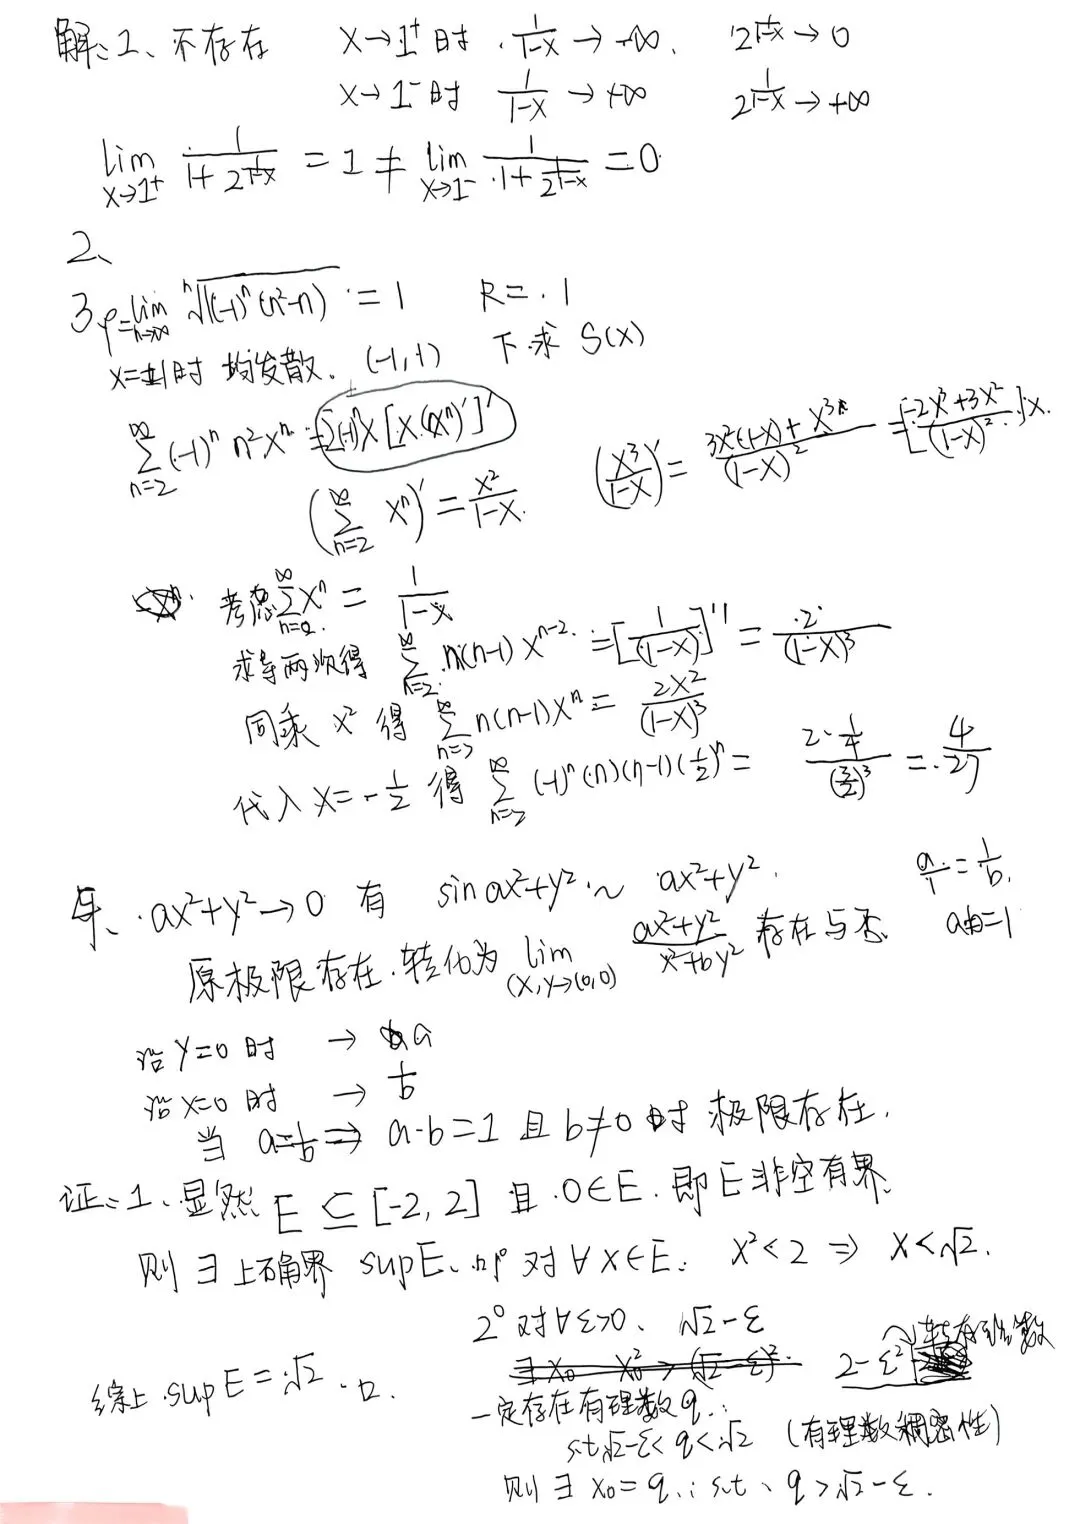 解:1、不存在 x→1⁺时 1/(1-x)→-∞. 2^(1/(1-x))→0
x→1⁻时 1/(1-x)→+∞ 2^(1/(1-x))→+∞
lim_(x→1⁺) 1/(1+2^(1/(1-x))) = 1 ≠ lim_(x→1⁻) 1/(1+2^(1/(1-x))) = 0
2、
3 ρ=lim_(n→∞) ⁿ√|(-1)ⁿ(n²-n)| = 1 R=1
x=±1时 均发散. (-1,1) 下求 S(x)
∑_(n=2)^∞ (-1)ⁿ n² xⁿ = ∑(-1)ⁿx[x·(xⁿ)′]′ (x³/(1-x))′ = (3x²(1-x)+x³)/(1-x)² = [(-2x³+3x²)/(1-x)²]x.
(∑_(n=2)^∞ xⁿ)′ = x²/(1-x)
考虑 ∑_(n=0)^∞ xⁿ = 1/(1-x)
求导两次得 ∑_(n=2)^∞ n(n-1)x^(n-2) = [1/(1-x)]′′ = 2/(1-x)³
同乘 x² 得 ∑_(n=2)^∞ n(n-1)xⁿ = 2x²/(1-x)³
代入 x=-1/2 得 ∑_(n=2)^∞ (-1)ⁿ(n)(n-1)(1/2)ⁿ = (2·1/4)/(3/2)³ = 4/27
4、ax²+y²→0 有 sin ax²+y² ~ ax²+y². a/1=1/b.
原极限存在.转化为 lim_((x,y)→(0,0)) (ax²+y²)/(x²+by²) 存在与否 ab=1
沿 y=0 时 → a
沿 x=0 时 → 1/b
当 a=1/b ⇒ a·b=1 且 b≠0 时 极限存在.
证:1、显然 E⊆[-2,2] 且 0∈E. 即E非空有界.
则∃上确界 supE、1° 对∀x∈E. x²<2 ⇒ x<√2.
2° 对∀ε>0、 √2-ε 转有理数
∃x₀ x₀²>(√2-ε)² 2-ε²
综上 supE=√2.□.
一定存在有理数q.
s.t √2-ε<q<√2 (有理数稠密性)
则∃x₀=q.: s.t、q>√2-ε.